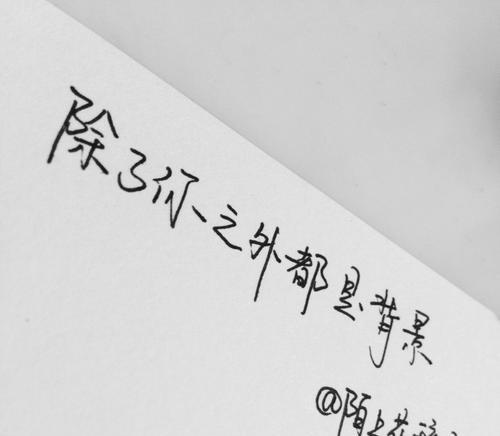 除了你、之外都是背景
@陌上花